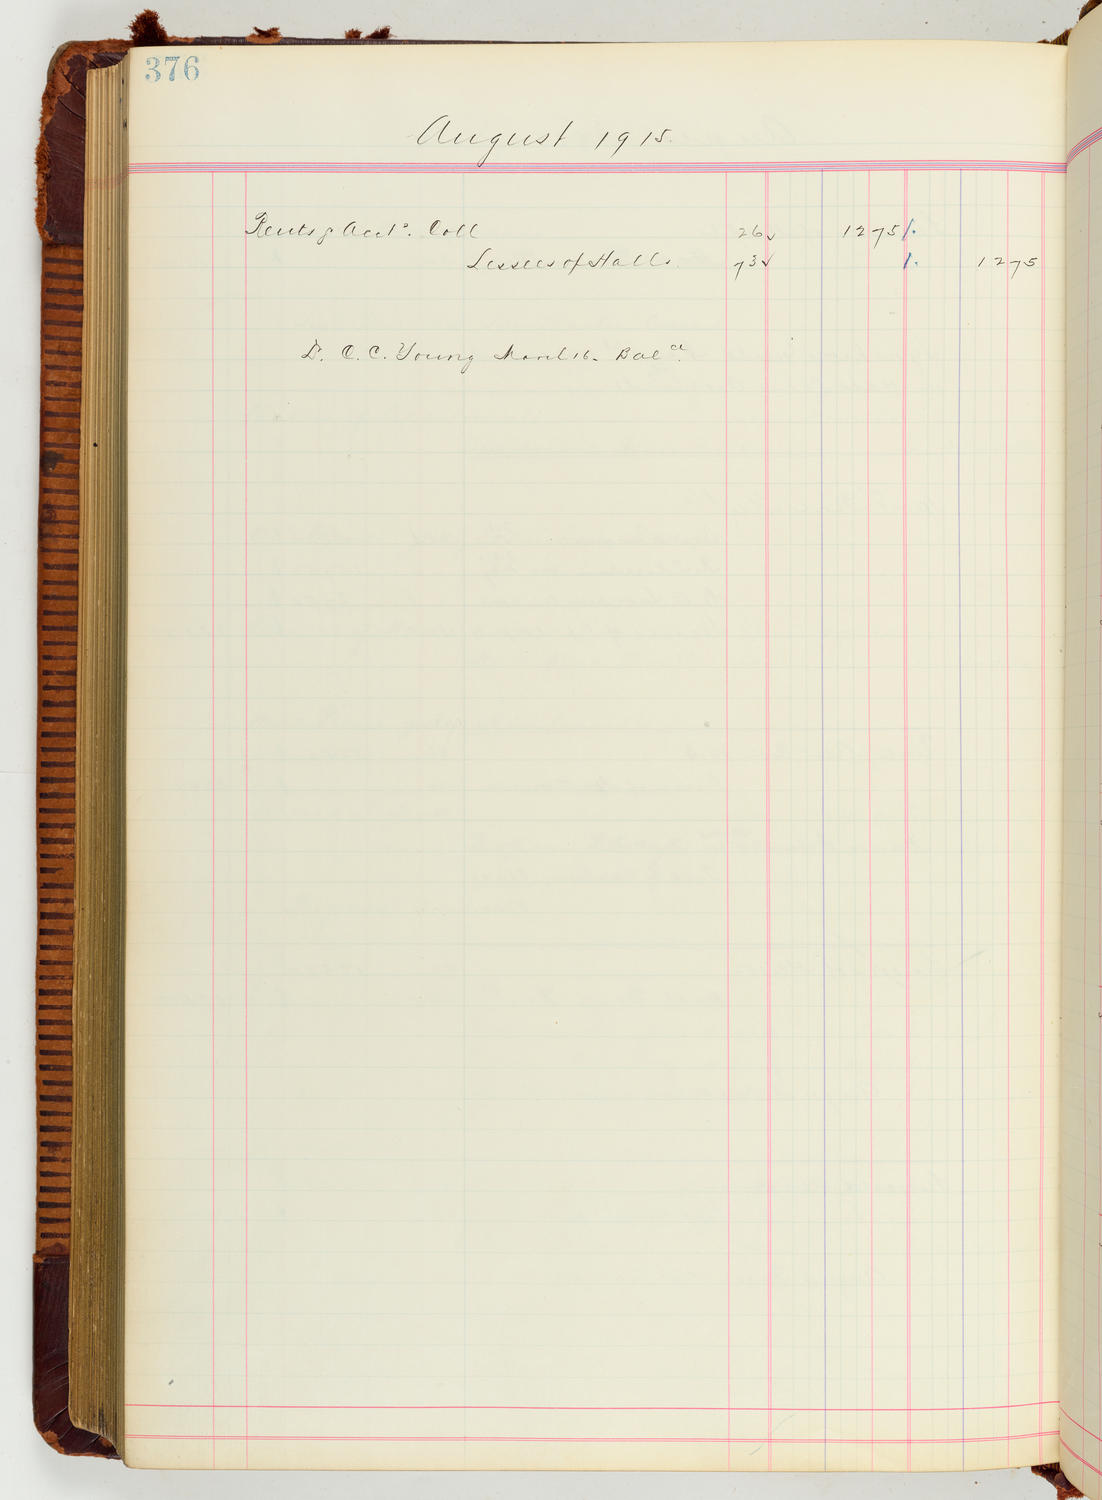 376
August 1915.
Rents & Accts. Coll 26 ✓ 1275 /.
Lessees of Halls. 73 ✓ /. 1275
D. O. C. Young March 16 - Bal